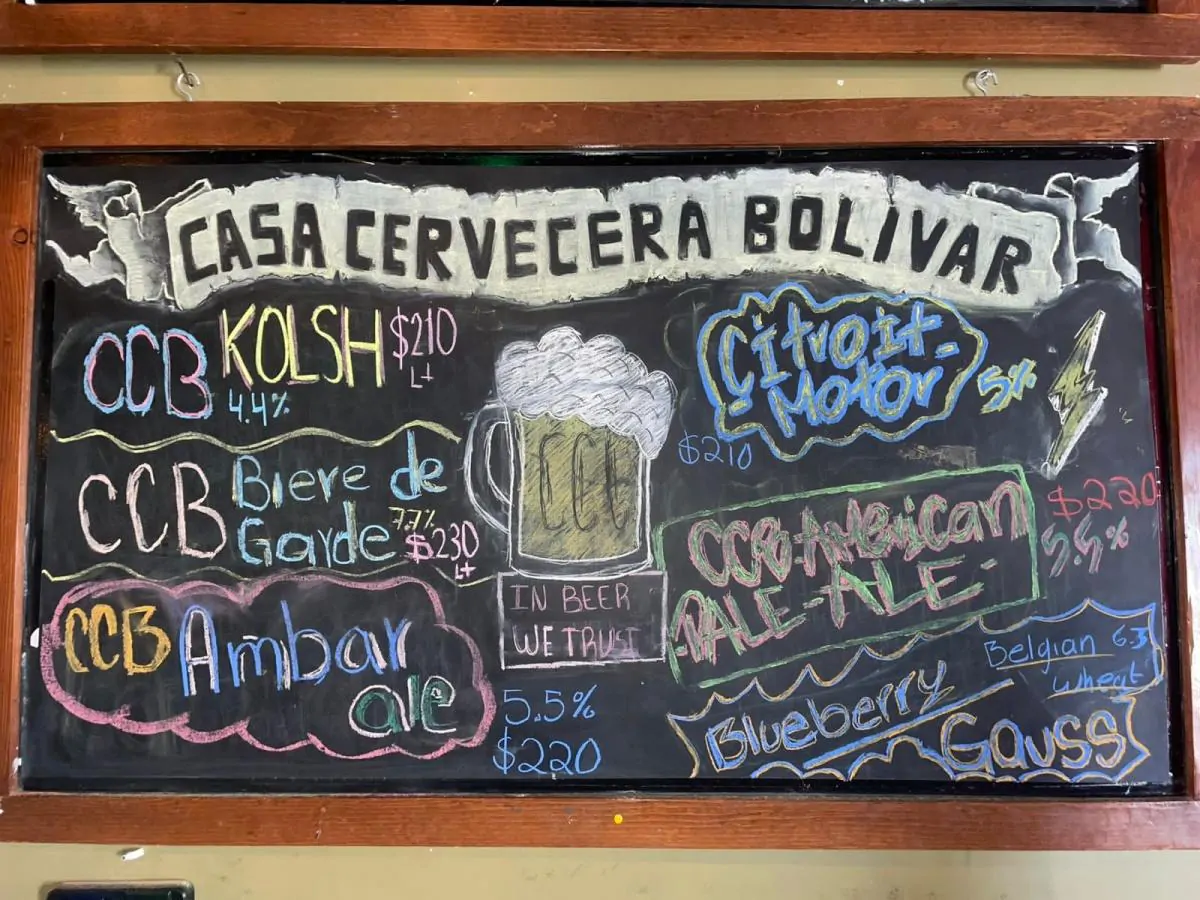 CASA CERVECERA BOLIVAR
CCB KOLSH $210
4.4% Lt
CCB Biere de
Garde 7.7%
$230
Lt
CCB Ambar
ale
5.5%
$220
IN BEER
WE TRUST
Citroit-
Motor 5%
$210
CCB-American
PALE-ALE-
$220
5.5%
Blueberry
Belgian 6.3
wheat
Gauss